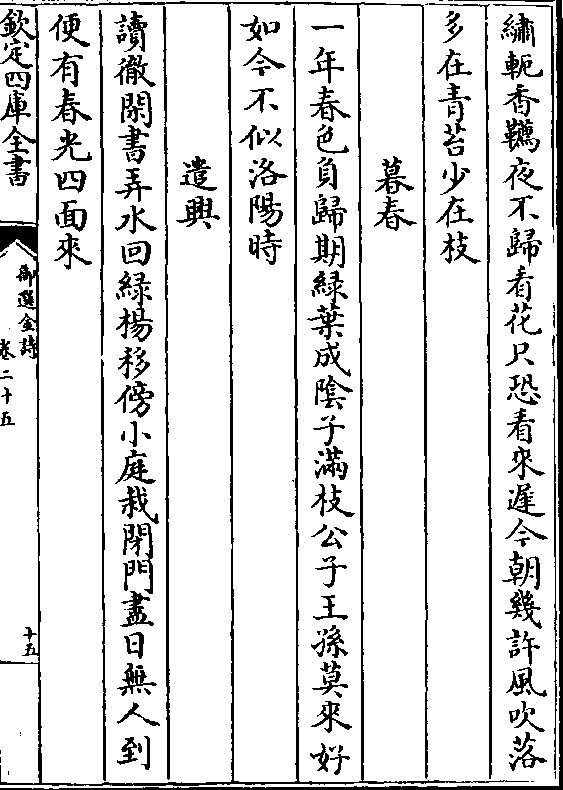 繡軛香韀夜不歸看花只恐看來遲今朝幾許風吹落
多在青苔少在枝
暮春
一年春色負歸期綠葉成陰子滿枝公子王孫莫來好
如今不似洛陽時
遣興
讀徹閑書弄水回綠楊移傍小庭栽閉門盡日無人到
便有春光四面來
欽定四庫全書
御選金詩
卷二十五
十五